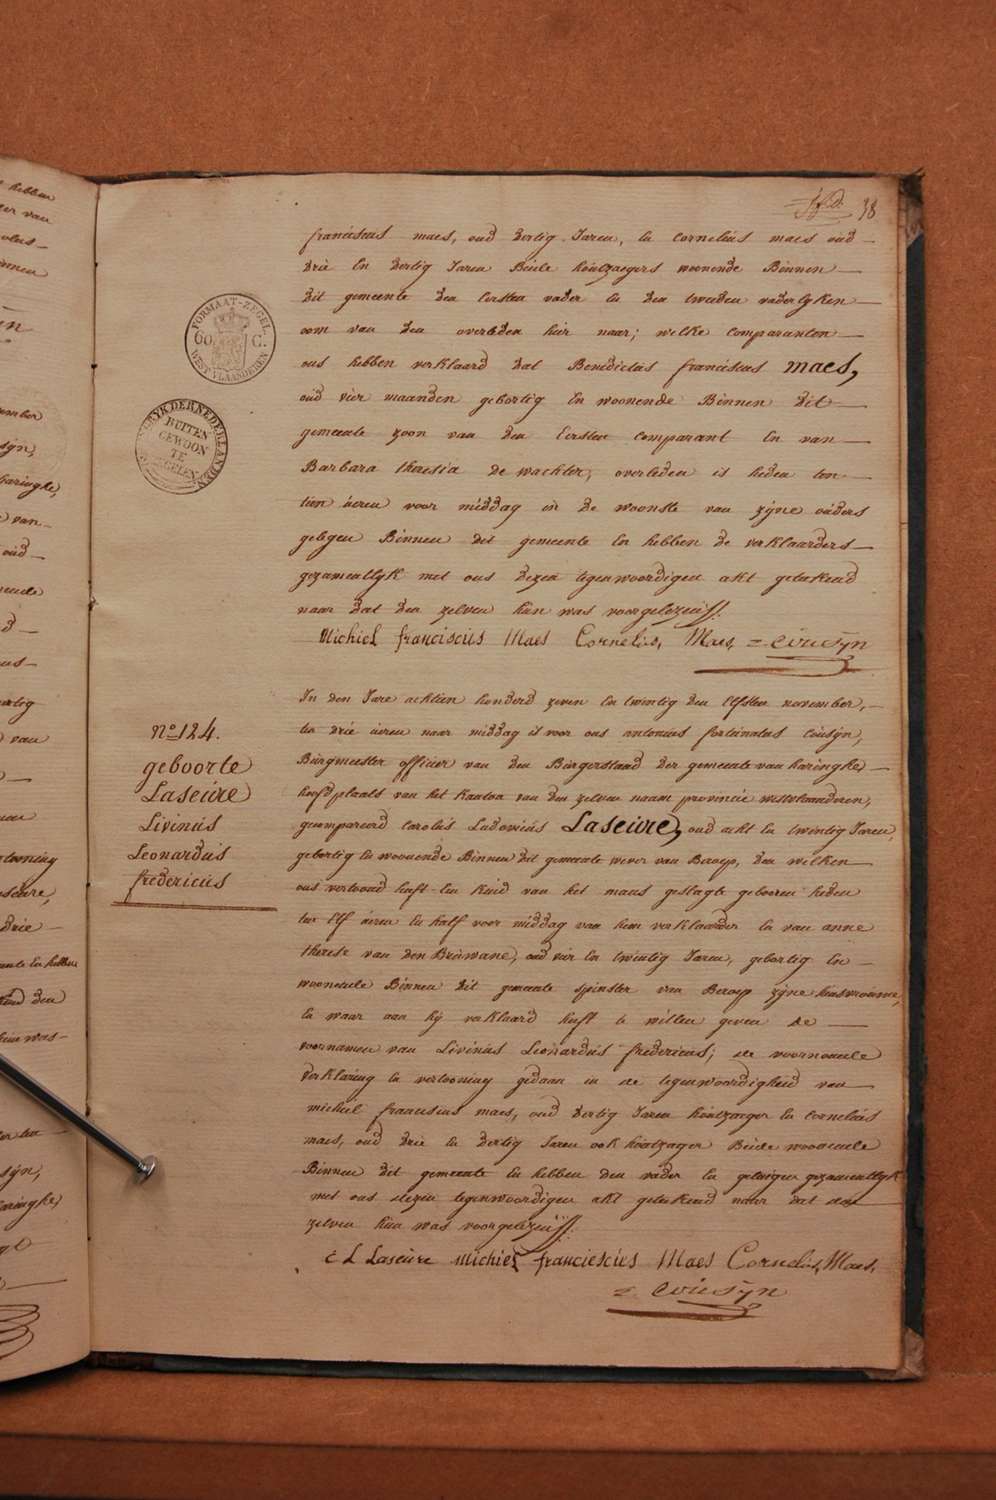 38
franciscus maes, oud dertig Jaren, En Cornelius maes oud
drie En dertig Jaren Beide houtzaegers woonende Binnen
dit gemeente den Eersten vader En den tweeden vaderlyken
oom van den overleden hier naer; welke comparanten
ons hebben verklaard dat Benedictus franciscus maes,
oud vier maanden gebortig En woonende Binnen dit
gemeente zoon van den Eersten comparant En van
Barbara theresia de wachter, overleden is heden ten
tien úeren voor middag in de woonste van zyne oúders
gelegen Binnen dit gemeente En hebben de verklaarders
gezamentlyk met ons dezen tegenwoordigen akt geteekend
naer dat den zelven hun was voorgelezen
Michiel franciscus Maes Cornelus, Maes, Coúsÿn
FORMAAT-ZEGEL
60. C.
WEST VLAANDEREN
RYK DER NEDERLANDEN
BUITEN
GEWOON
TE
ZEGELEN
No 124.
geboorte
Laseure
Livinus
Leonardus
fredericus
In den Jare achtien honderd zeven En twintig den Elfsten november,
ten drie úeren naer middag is voor ons antonius fortunatus Coúsÿn,
Bürgmeester officier van den Bürgerstand der gemeente van haringhe
hoofdplaats van het kanton van den zelven naam provincie westvlaanderen,
gecompareerd carolus Ludovicus Laseure, oud acht En twintig Jaren,
gebortig En woonende Binnen dit gemeente wever van Beroep, den welken
ons vertoond heeft Een kind van het mans geslagte gebooren heden
ten Elf úeren En half voor middag van hem verklaarder En van anne
therese van den Bruwane, oud vier En twintig Jaren, gebortig En
woonende Binnen dit gemeente spinster van Beroep zyne huisvrouwe,
En waer aen hÿ verklaard heeft te willen geven de
voornamen van Livinus Leonardus fredericus; de voornoemde
verklaring En vertooning gedaan in de tegenwoordigheid van
michiel franciscus maes, oud dertig Jaren houtzaeger En cornelius
maes, oud drie En dertig Jaren ook houtzager Beide woonende
Binnen dit gemeente En hebben den vader En getuigen gezamentlyk
met ons dezen tegenwoordigen akt geteekend naer dat den
zelven hun was voorgelezen
C L Laseure Michiel franciescius Maes Cornelus, Maes,
Coúsÿn